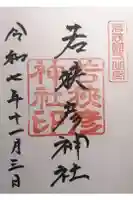 若狭彦神社
若狭彦
神社印
令和七年十一月三日